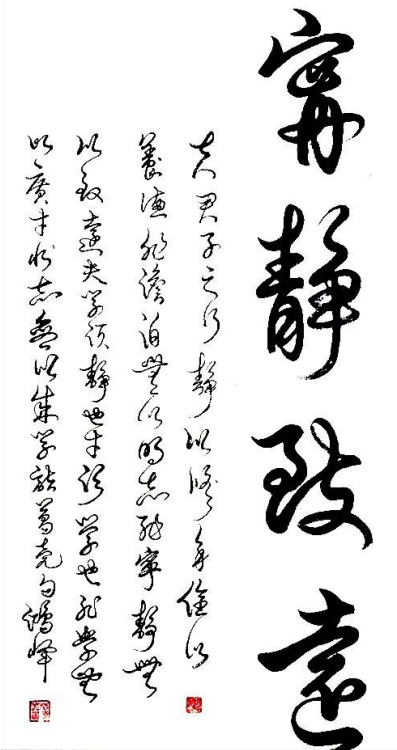 寧靜致遠
夫君子之行靜以修身儉以
養德非澹泊無以明志非寧靜無
以致遠夫學須靜也才須學也非學無
以廣才非志無以成學諸葛亮句鴻峰